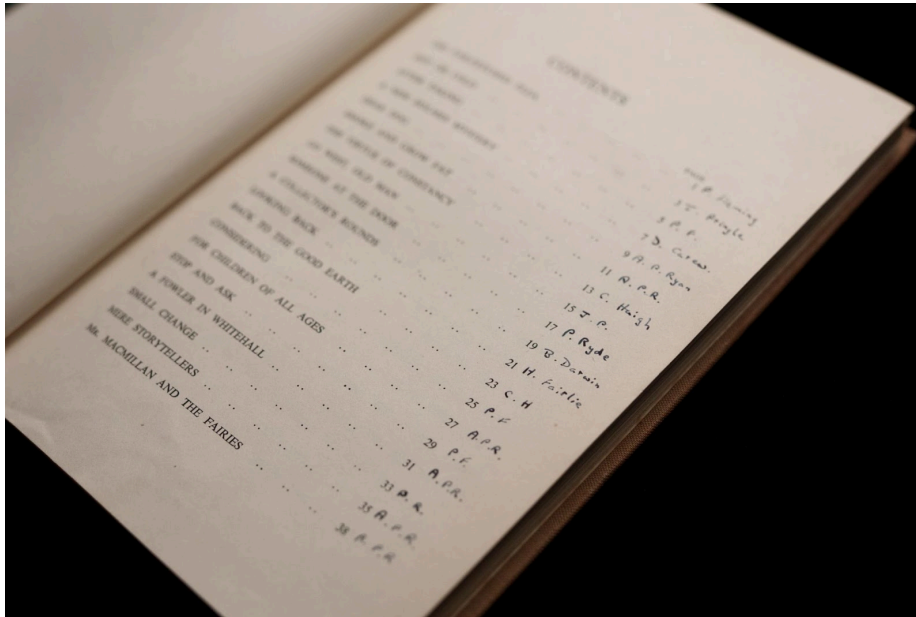 CONTENTS
THE 1 P. Fleming
3 J. Pringle
5 P. F.
A NEW MYSTERY 7 D. Carew.
9 A. P. Ryan
AND GROW FAT 11 A. P. R.
THE VIRTUE OF CONSTANCY 13 C. Haigh
OLD MAN 15 J. P.
SOMEONE AT THE DOOR 17 P. Ryde
A COLLECTOR'S ROUNDS 19 B. Darwin
LOOKING BACK .. 21 H. Fairlie
BACK TO THE GOOD EARTH 23 C. H
CONSIDERING .. 25 P. F
FOR CHILDREN OF ALL AGES 27 A.P.R.
STOP AND ASK .. 29 P.F.
A FOWLER IN WHITEHALL 31 A.P.R.
SMALL CHANGE .. 33 P. R.
MERE STORYTELLERS .. 35 A.P.R.
MR. MACMILLAN AND THE FAIRIES .. 38 A.P.R